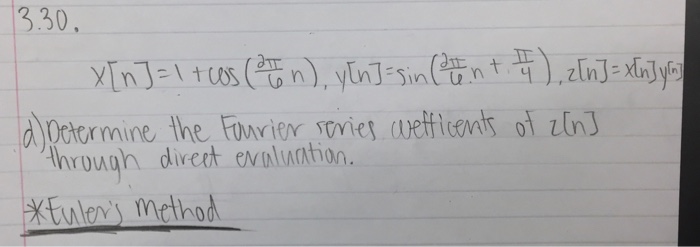 3.30.
x[n]=1+cos(2π/6 n), y[n]=sin(2π/6 n + π/4), z[n]=x[n]y[n]
d) Determine the Fourier series coefficents of z[n]
through direct evaluation.
*Euler's Method